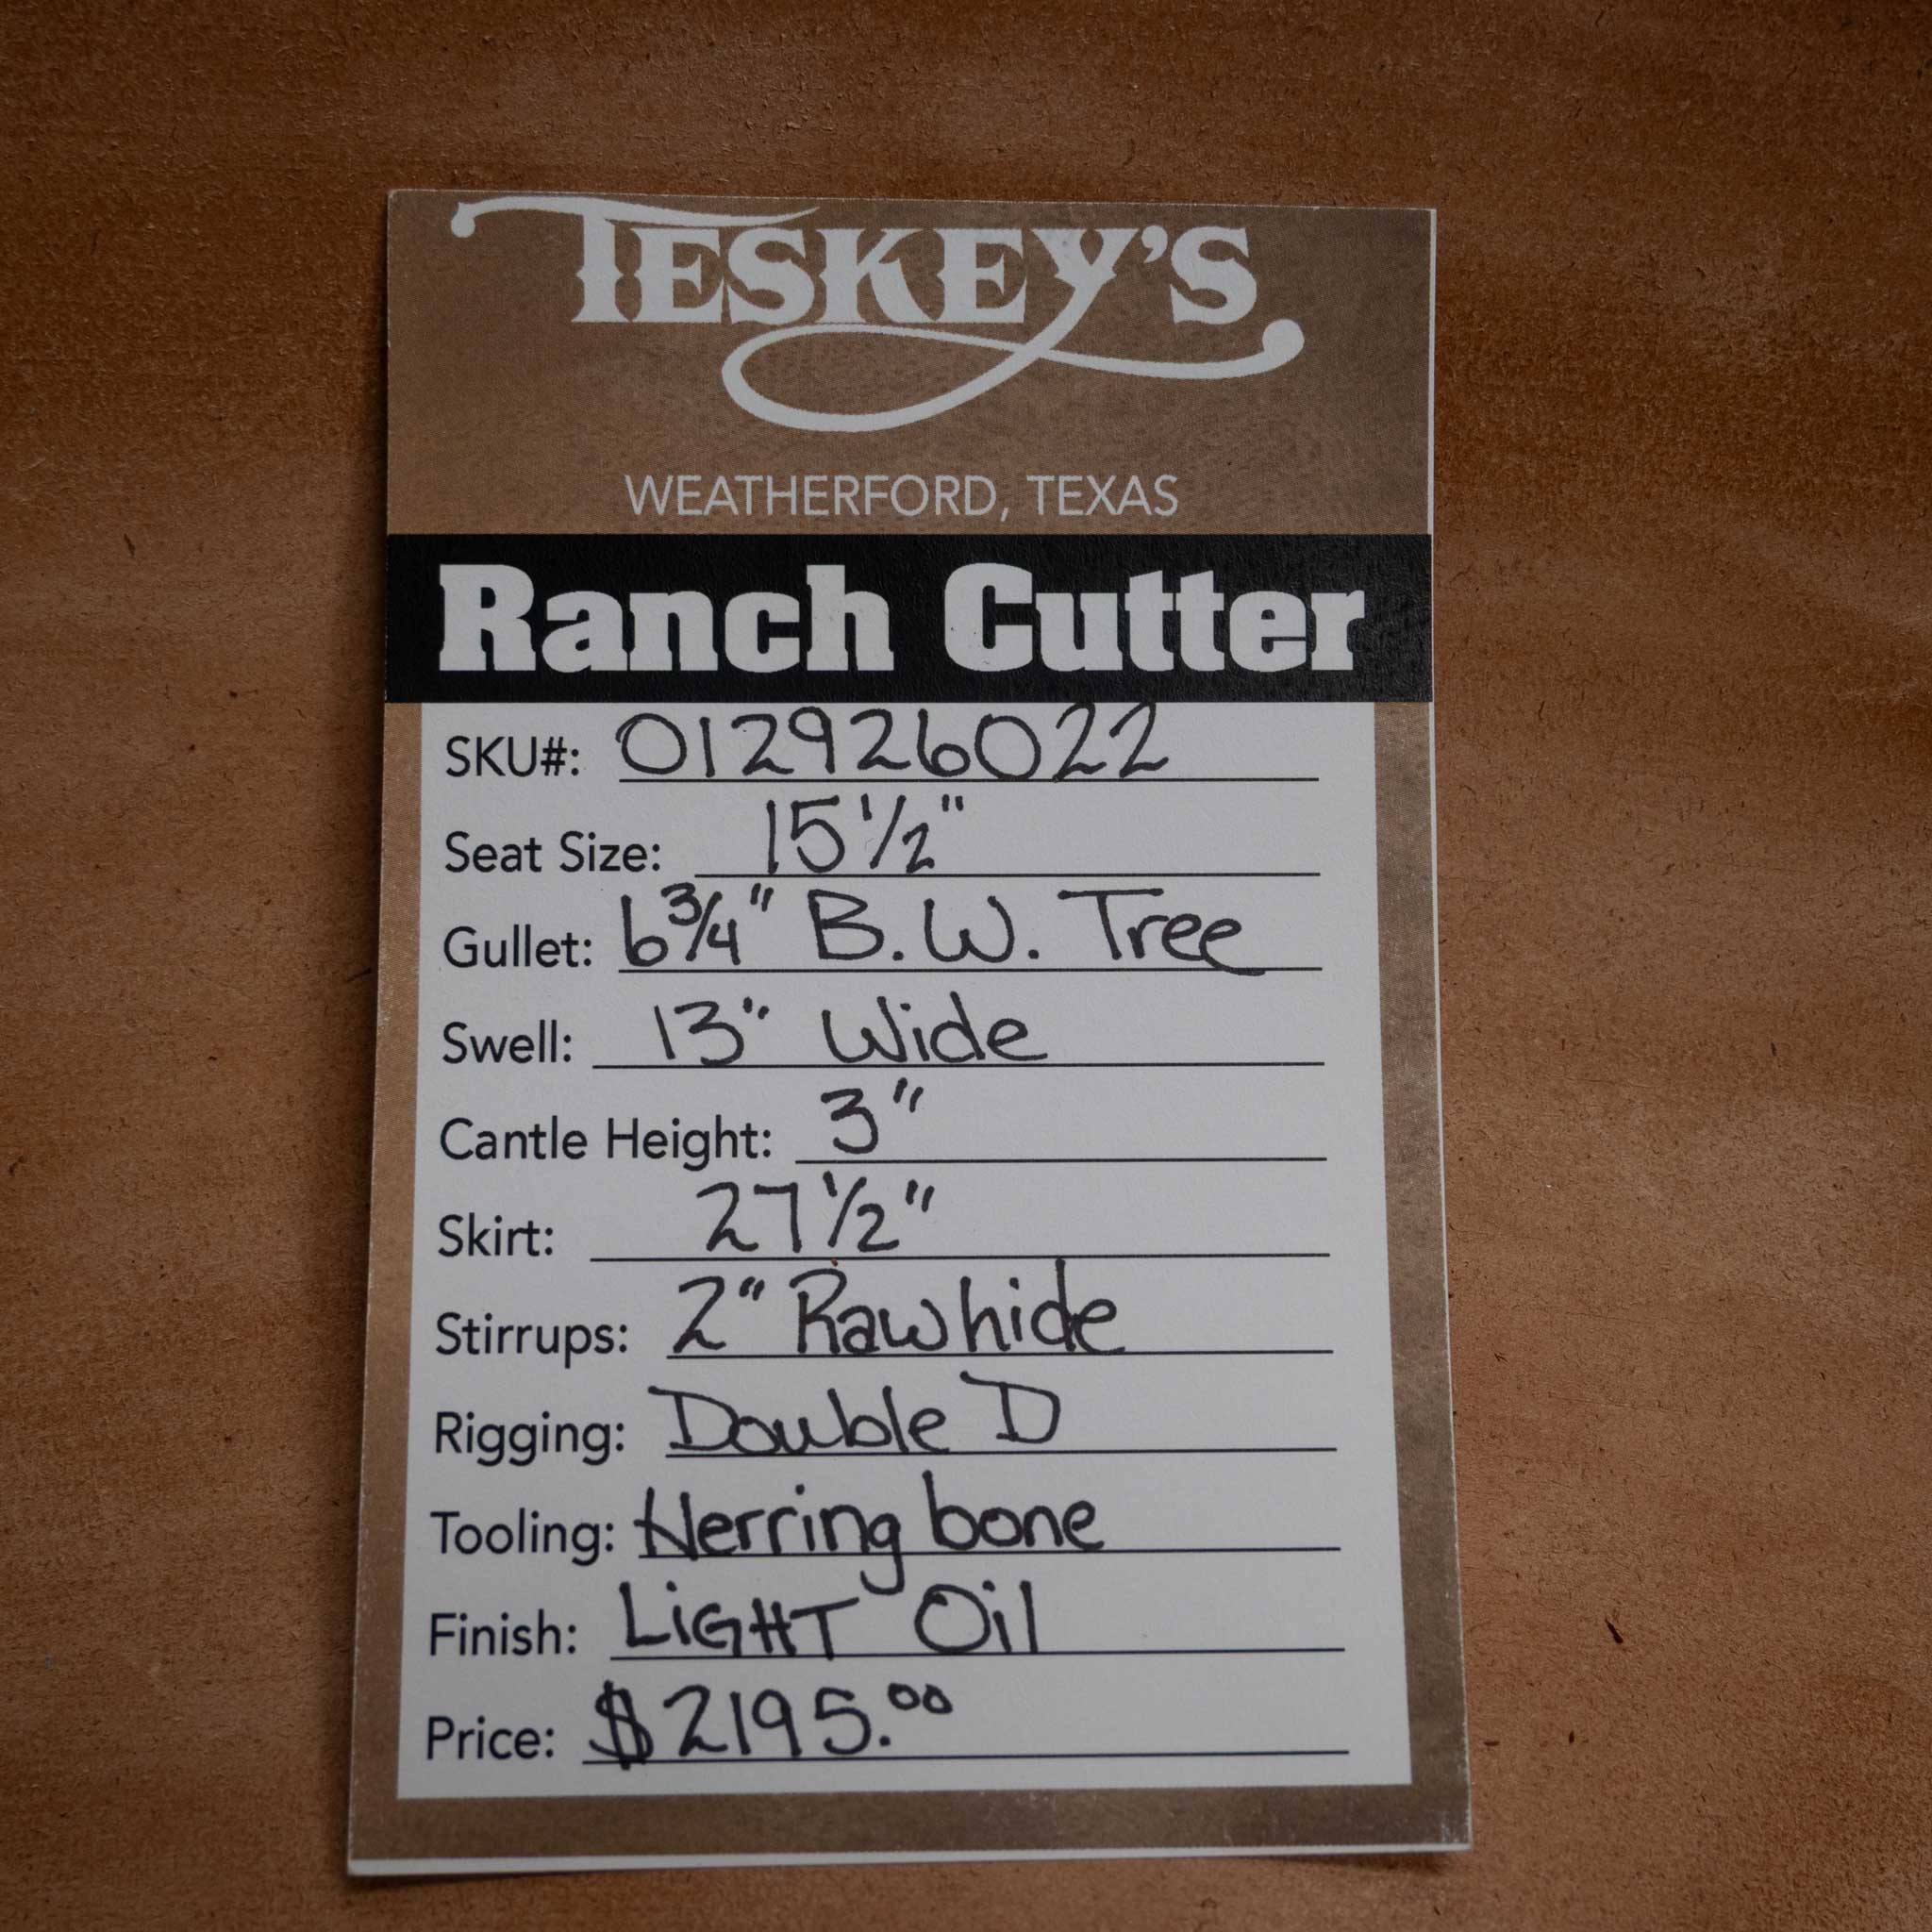 TESKEY'S
WEATHERFORD, TEXAS
Ranch Cutter
SKU#: 012926022
Seat Size: 15 1/2"
Gullet: 6 3/4" B.W. Tree
Swell: 13" Wide
Cantle Height: 3"
Skirt: 27 1/2"
Stirrups: 2" Rawhide
Rigging: Double D
Tooling: Herring bone
Finish: LiGHT Oil
Price: $2195.00